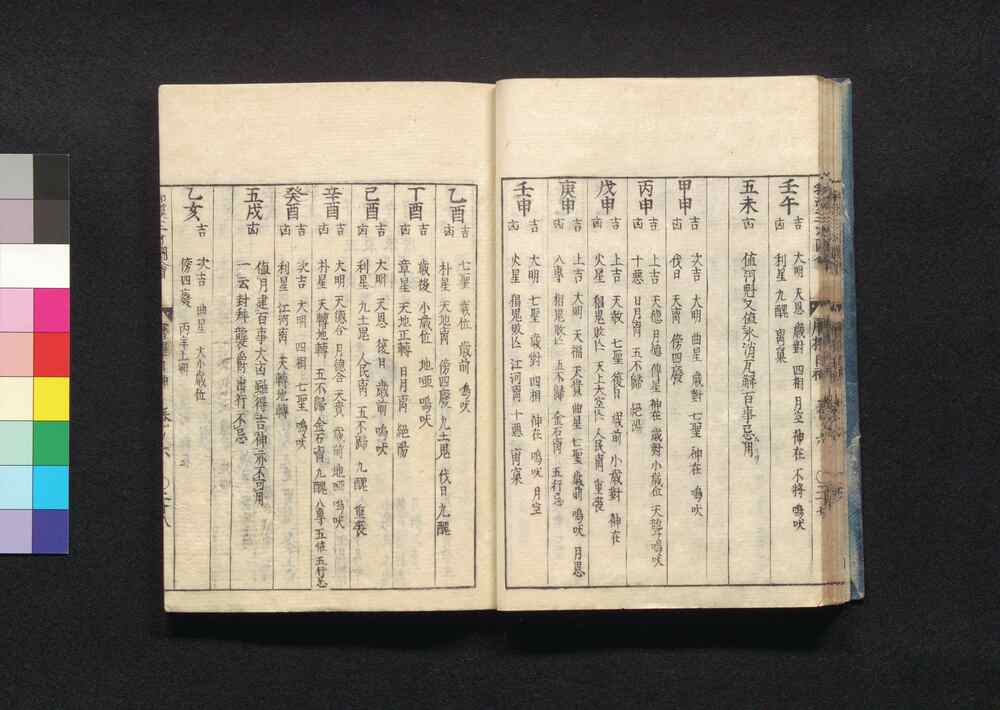 壬午
吉 大明 天恩 歳對 四相 月空 神在 不將 鳴吠
凶 利星 九醜 宵窠
五未
凶 值河魁又值氷消瓦解百事忌用
甲申
吉 次吉 大明 曲星 歳對 七聖 神在 鳴吠
凶 伐日 天南 傍四廢
丙申
吉 上吉 天德 月德 傳星 神在 歳對 小歳位 天聾 鳴吠
凶 十悪 日月南 五不歸 絕陽
戊申
吉 上吉 天赦 七聖 復日 歳前 小歳對 神在
凶 火星 鬼敗亡 天上大空亡 人民南 重喪
庚申
吉 上吉 大明 天福 天貴 曲星 七聖 歳前 鳴吠 月恩
凶 八專 鬼敗亡 五不歸 金石南 五行忌
壬申
吉 大明 七聖 歳對 四相 神在 鳴吠 月空
凶 火星 鬼敗亡 江河南 十悪 宵窠
乙酉
吉 七聖 歳位 歳前 鳴吠
凶 朴星 天地南 傍四廢 九土鬼 伐日 九醜
丁酉
吉 歳後 小歳位 地啞 鳴吠
凶 章星 天地正轉 日月南 絕陽
己酉
吉 大明 天恩 復日 歳前 鳴吠
凶 利星 九土鬼 人民南 五不歸 九醜 重喪
辛酉
吉 大明 天德合 月德合 天貴 歳前 地啞 鳴吠
凶 朴星 天轉地轉 五不歸 金石南 九醜 八專 五離 五行忌
癸酉
吉 次吉 大明 四相 七聖 鳴吠
凶 利星 江河南 天轉地轉
五戌
凶 值月建百事大凶雖得吉神亦不可用
一云封拜襲爵出行不忌
乙亥
吉 次吉 曲星 大小歳位
傍四廢